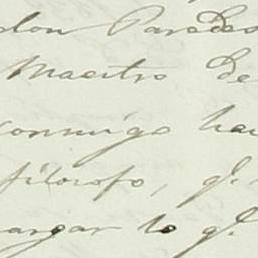 don Paredes
Maestro de
conmigo ha
filosofo, q.
argar lo q.